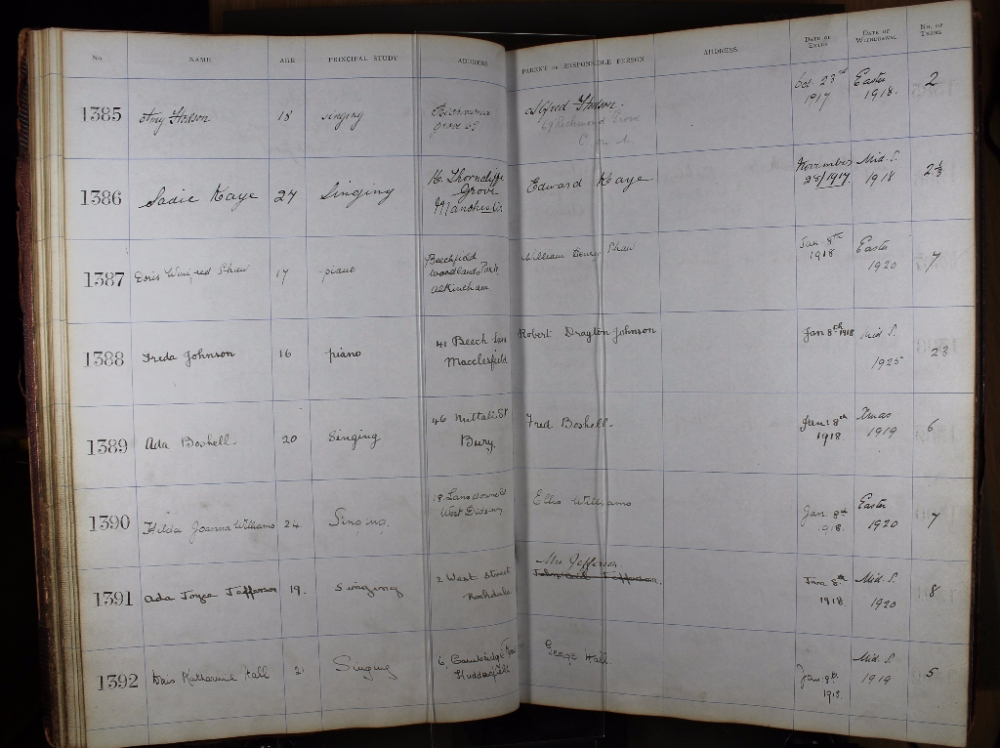 No. NAME AGE PRINCIPAL STUDY ADDRESS PARENT OR RESPONSIBLE PERSON ADDRESS DATE OF ENTRY DATE OF WITHDRAWAL NO. OF TERMS
1385 Amy Hudson 18 singing Richmond Grove Alfred Hudson Oct. 23rd 1917 Easter 1918. 2
Richmond Grove
C. on M.
1386 Sadie Kaye 24 Singing 16 Thorncliffe Grove Manchester Edward Kaye November 28/1917. Mid. S. 1918
1387 Doris Winifred Shaw 17 piano Beechfield Woodlands Park Altrincham William Henry Shaw Jan 8th 1918 Easter 1920 7
1388 Freda Johnson 16 piano 41 Beech Lane Macclesfield Robert Drayton Johnson Jan 8th 1918 Mid S. 1925 23
1389 Ada Boshell. 20 Singing 46 Nuttall St Bury. Fred Boshell. Jan 8th 1918. Xmas 1919 6
1390 Hilda Joanna Williams 24. Singing. Lansdowne West Didsbury Ellis Williams Jan. 8th 1918. Easter 1920 7
1391 Ada Joyce Jefferson 19. Singing 2 West Street Rochdale Mrs Jefferson Jan. 8th 1918. Mid. S. 1920 8
1392 Doris Katharine Hall 21 Singing 6, Cambridge Huddersfield George Hall Jan. 8th 1918. Mid. S. 1919 5